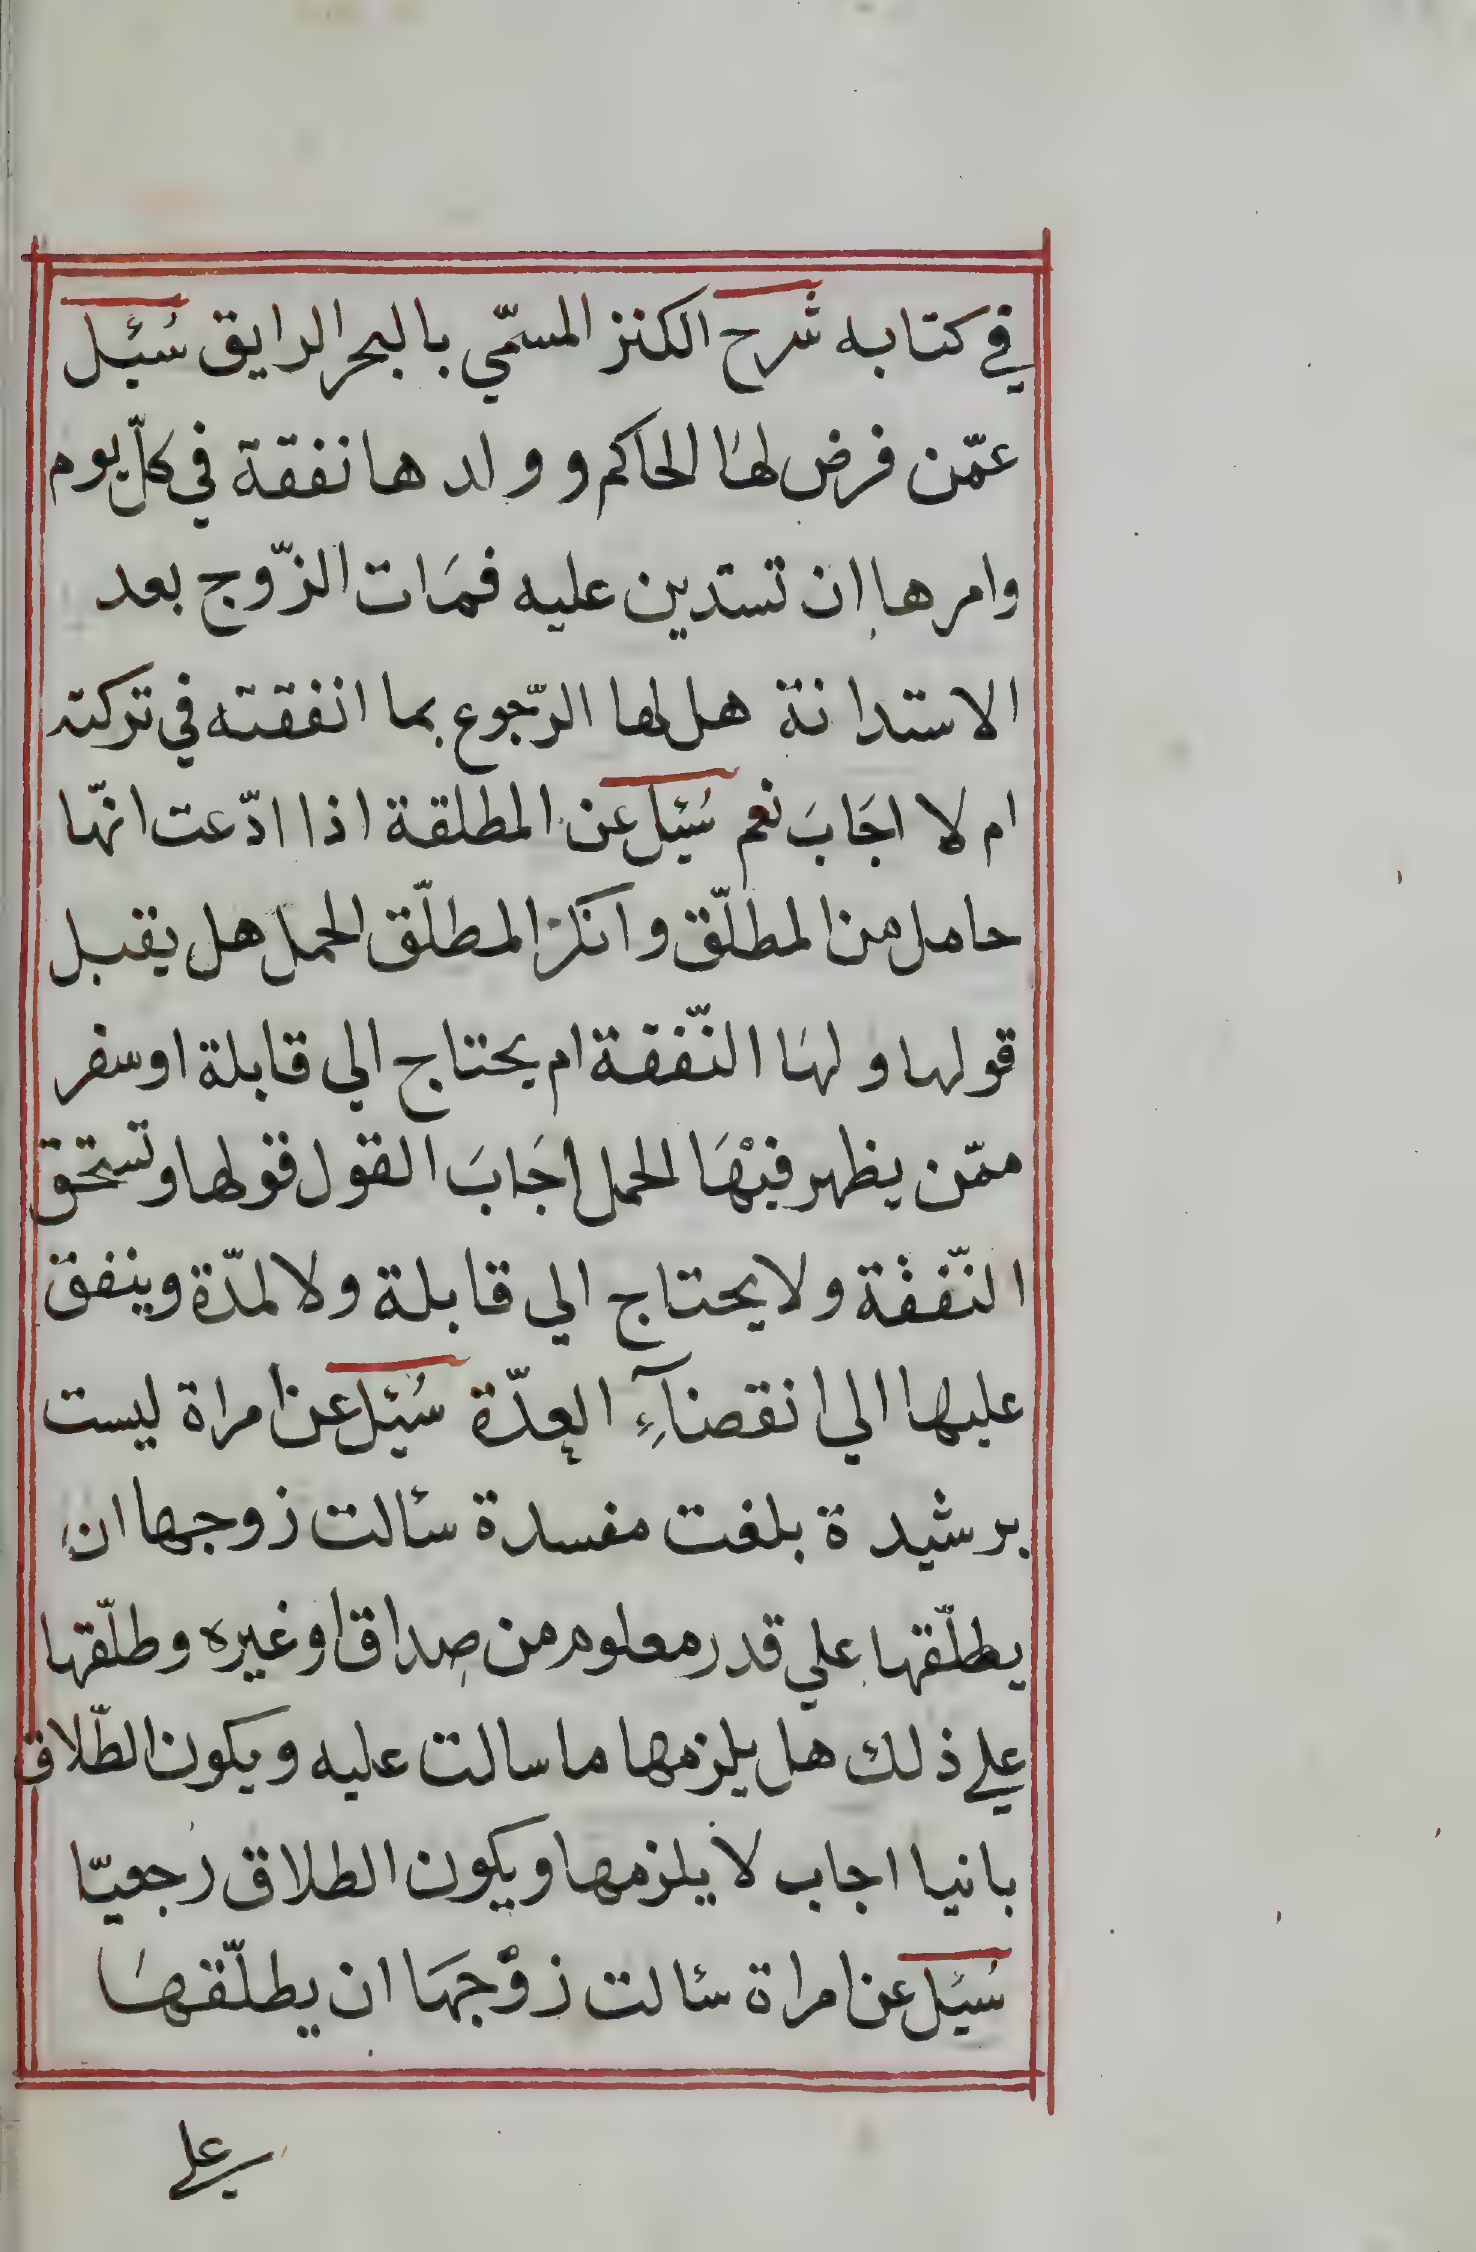 في كتابه شرح الكنز المسمّي بالبحر الرايق سُئِل
عمّن فرض لها الحاكم و ولدها نفقة في كلّ يوم
وامرها ان تستدين عليه فمَات الزّوج بعد
الاستدانة هل لها الرّجوع بما انفقته في تركته
ام لا اجَابَ نعم سُئِل عن المطلقة اذا ادّعت انّها
حامل من المطلّق وانكر المطلّق الحمل هل يقبل
قولها ولها النّفقة ام يحتاج الي قابلة اوسفر
ممّن يظهر فيْهَا الحمل اجَابَ القول قولها وتستحق
النّفقة ولا يحتاج الي قابلة ولا لمدّة وينفق
عليها الي انقضآءِ العِدّة سُئِل عن امراة ليست
برشيدة بلغت مفسدة سئالت زوجها ان
يطلّقها علي قدر معلوم من صِداق اوغيره وطلّقها
علي ذلك هل يلزمها ما سالت عليه ويكون الطّلاق
بانيا اجاب لا يلزمها ويكون الطلاق رجعيّا
سُئِل عن امراة سئالت زوْجهَا ان يطلّقهَا
علي